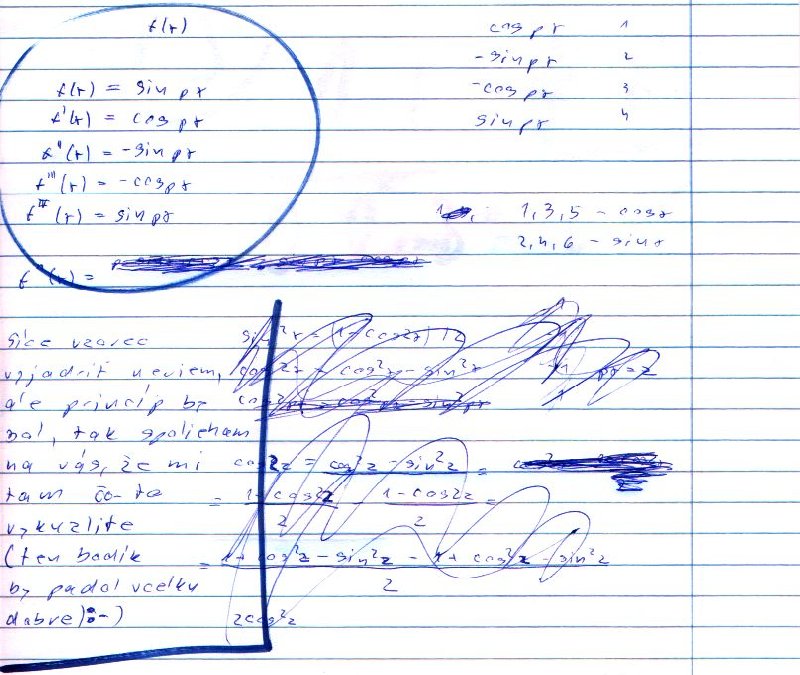 f(x)
f(x) = sin px
f'(x) = cos px
f''(x) = -sin px
f'''(x) = -cos px
f^IV(x) = sin px
f^n(x) =
cos px 1
-sin px 2
-cos px 3
sin px 4
1,3,5 - cos x
2,4,6 - sin x
síce vzorec
vyjadriť neviem,
ale princíp by
bol, tak spolieham
na vás, že mi
tam čo-to
vykúzlite
(ten bodík
by padol vcelku
dobre):-)
sin²x = (1-cos2x)/2
cos2x = cos²x - sin²x
px = z
cos2z = cos²z - sin²z =
= 1+cos2z / 2 - 1-cos2z / 2 =
= 1+cos²z - sin²z - 1 + cos²z - sin²z / 2
2cos²z